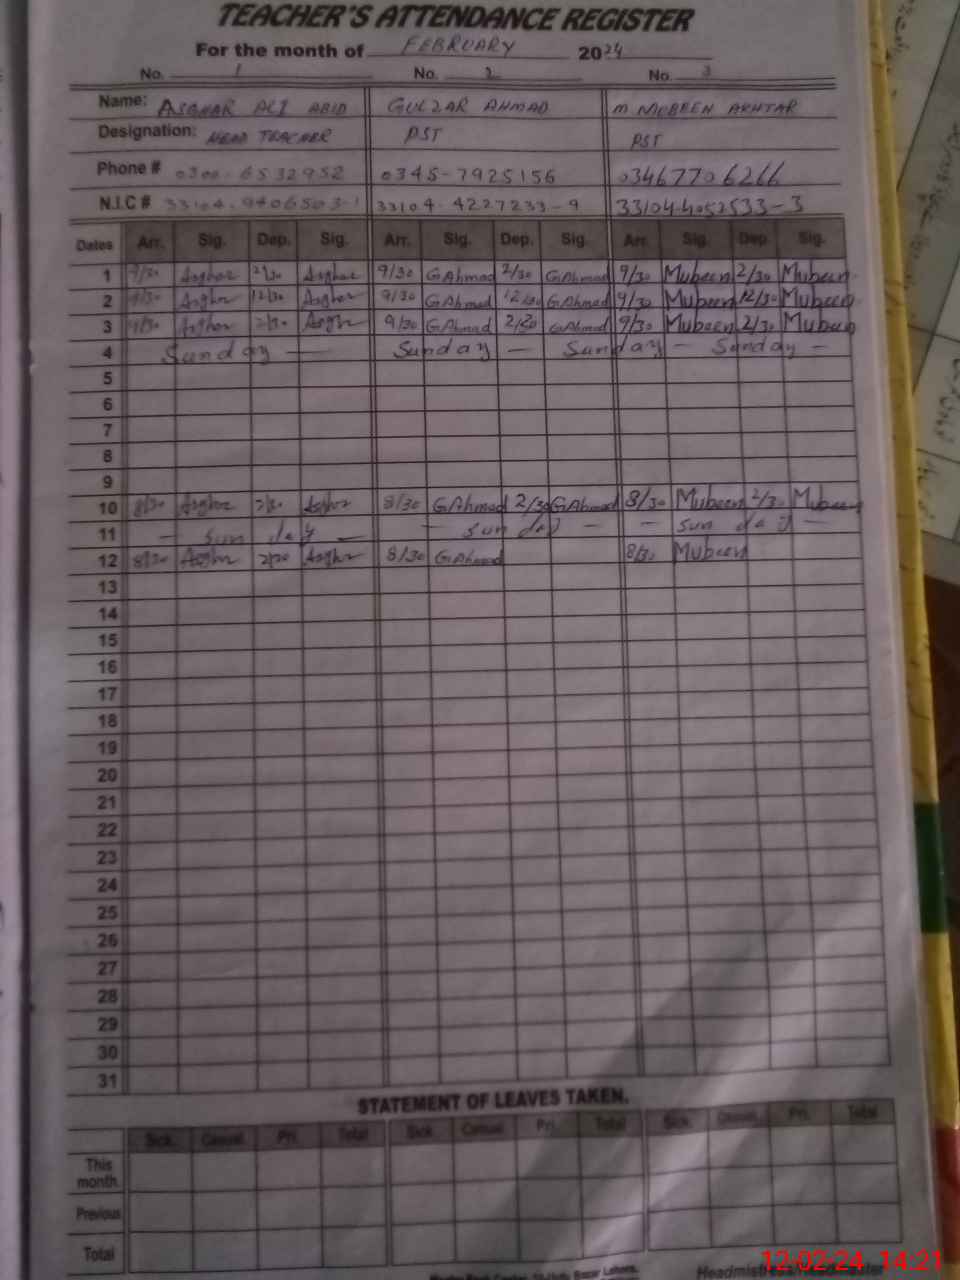 TEACHER'S ATTENDANCE REGISTER
For the month of FEBRUARY 2024
No. 1 No. 2 No. 3
Name: ASGHAR ALI ABID GULZAR AHMAD M MUBEEN AKHTAR
Designation: HEAD TEACHER PST PST
Phone # 0300-6532952 0345-7925156 03467706266
N.I.C # 33104-9406503-1 33104-4227233-9 33104-4052533-3
Dates Arr. Sig. Dep. Sig. Arr. Sig. Dep. Sig. Arr. Sig. Dep. Sig.
1 9/30 Asghar 2/30 Asghar 9/30 GAhmad 2/30 GAhmad 9/30 Mubeen 2/30 Mubeen
2 9/30 Asghar 12/30 Asghar 9/30 GAhmad 12/30 GAhmad 9/30 Mubeen 12/30 Mubeen
3 9/30 Asghar 2/30 Asghar 9/30 GAhmad 2/30 GAhmad 9/30 Mubeen 2/30 Mubeen
4 Sunday — Sunday — Sunday — Sunday —
5
6
7
8
9
10 8/30 Asghar 2/30 Asghar 8/30 GAhmad 2/30 GAhmad 8/30 Mubeen 2/30 Mubeen
11 — Sunday — — Sunday — — Sunday —
12 8/30 Asghar 2/30 Asghar 8/30 GAhmad 8/30 Mubeen
13
14
15
16
17
18
19
20
21
22
23
24
25
26
27
28
29
30
31
STATEMENT OF LEAVES TAKEN.
Sick. Casual. Pri. Total Sick. Casual. Pri. Total Sick. Casual. Pri. Total
This month
Previous
Total
Urdu Bazar Lahore.
Headmistress/Headmaster
12-02-24 14:21